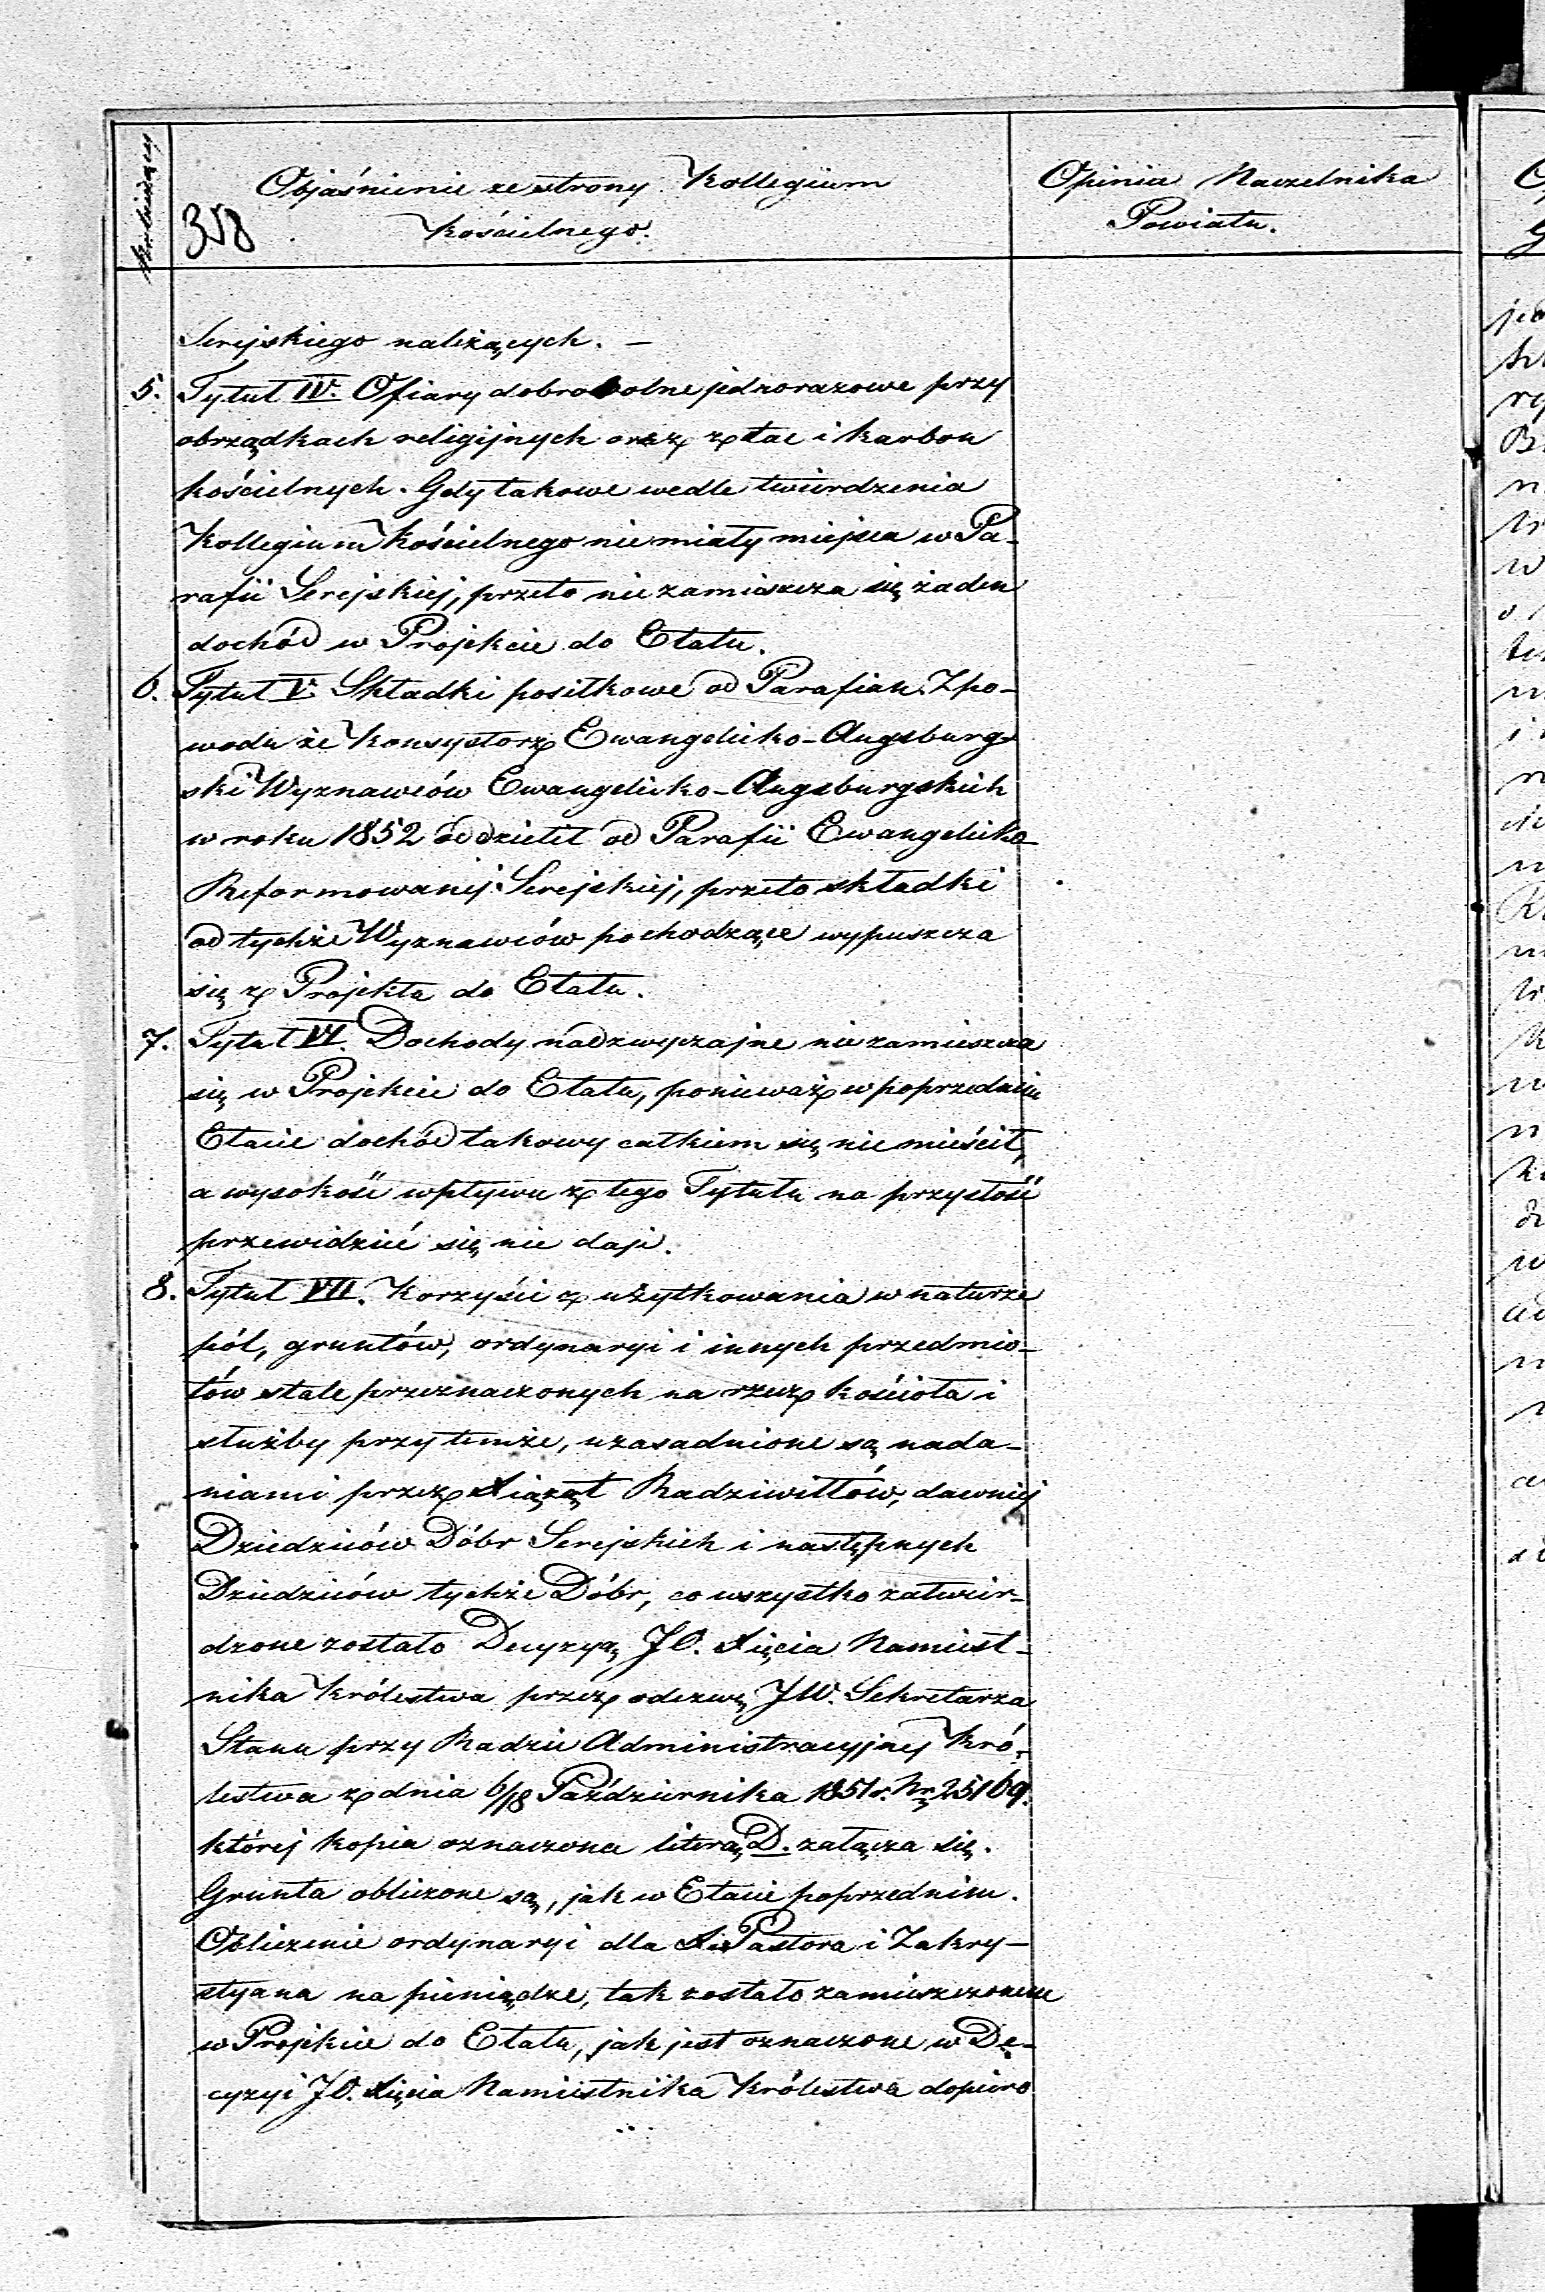 Nr. bieżący
Objaśnienie ze strony Kollegium
Kościelnego.
358
Opinia Naczelnika
Powiatu.
Serejskiego należących. —
5. Tytuł IV. Ofiary dobrowolne jednorazowe przy
obrządkach religijnych oraz z tac i karbon
kościelnych. Gdy takowe wedle twierdzenia
Kollegium Kościelnego nie miały miejsca w Pa-
rafii Serejskiej, przeto nie zamieszcza się żaden
dochód w Projekcie do Etatu.
6. Tytuł V. Składki posiłkowe od Parafian. Z po-
wodu że Konsystorz Ewangelicko-Augsburg-
ski Wyznawców Ewangelicko-Augsburgskich
w roku 1852 oddzielił od Parafii Ewangelicko-
Reformowanej Serejskiej, przeto składki
od tychże Wyznawców pochodzące wypuszcza
się z Projektu do Etatu.
7. Tytuł VI. Dochody nadzwyczajne nie zamieszcza
się w Projekcie do Etatu, ponieważ w poprzednim
Etacie dochód takowy całkiem się nie mieścił,
a wysokość wpływu z tego Tytułu na przyszłość
przewidzieć się nie daje.
8. Tytuł VII. Korzyści z użytkowania w naturze
pól, gruntów, ordynaryi i innych przedmio-
tów stale przeznaczonych na rzecz kościoła i
służby przy temże, uzasadnione są nada-
niami przez Xiążąt Radziwiłłów, dawniej
Dziedziców Dóbr Serejskich i następnych
Dziedziców tychże Dóbr, co wszystko zatwier-
dzone zostało Decyzyą JO. Xięcia Namiest-
nika Królestwa przez odezwę JW. Sekretarza
Stanu przy Radzie Administracyjnej Kró-
lestwa z dnia 6/18 Października 1851 r. Nr 25169.
której kopia oznaczona literą D. załącza się.
Grunta obliczone są, jak w Etacie poprzednim.
Obliczenie ordynaryi dla Xię Pastora i Zakry-
styana na pieniądze, tak zostało zamieszczonem
w Projekcie do Etatu, jak jest oznaczone w De-
cyzyi JO. Xięcia Namiestnika Królestwa dopiero